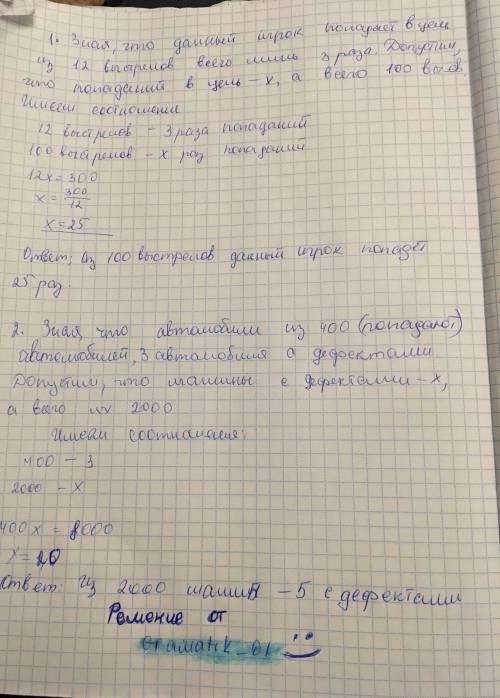 1. Зная, что данный игрок попадает в цель
из 12 выстрелов всего лишь 3 раза. Допустим,
что попаданий в цель – x, а всего 100 выст.
Имеем соотношени
12 выстрелов – 3 раза попаданий
100 выстрелов – x раз попаданий
12x = 300
x = 300/12
x = 25
Ответ: из 100 выстрелов данный игрок попадёт
25 раз.
2. Зная, что автомобили из 400 (попадают)
автомобилей, 3 автомобиля с дефектами
Допустим, что машины с дефектами – x,
а всего их 2000
Имеем соотношения:
400 – 3
2000 – x
400x = 8000
x = 20
Ответ: Из 2000 машин – 5 с дефектами
Решение от